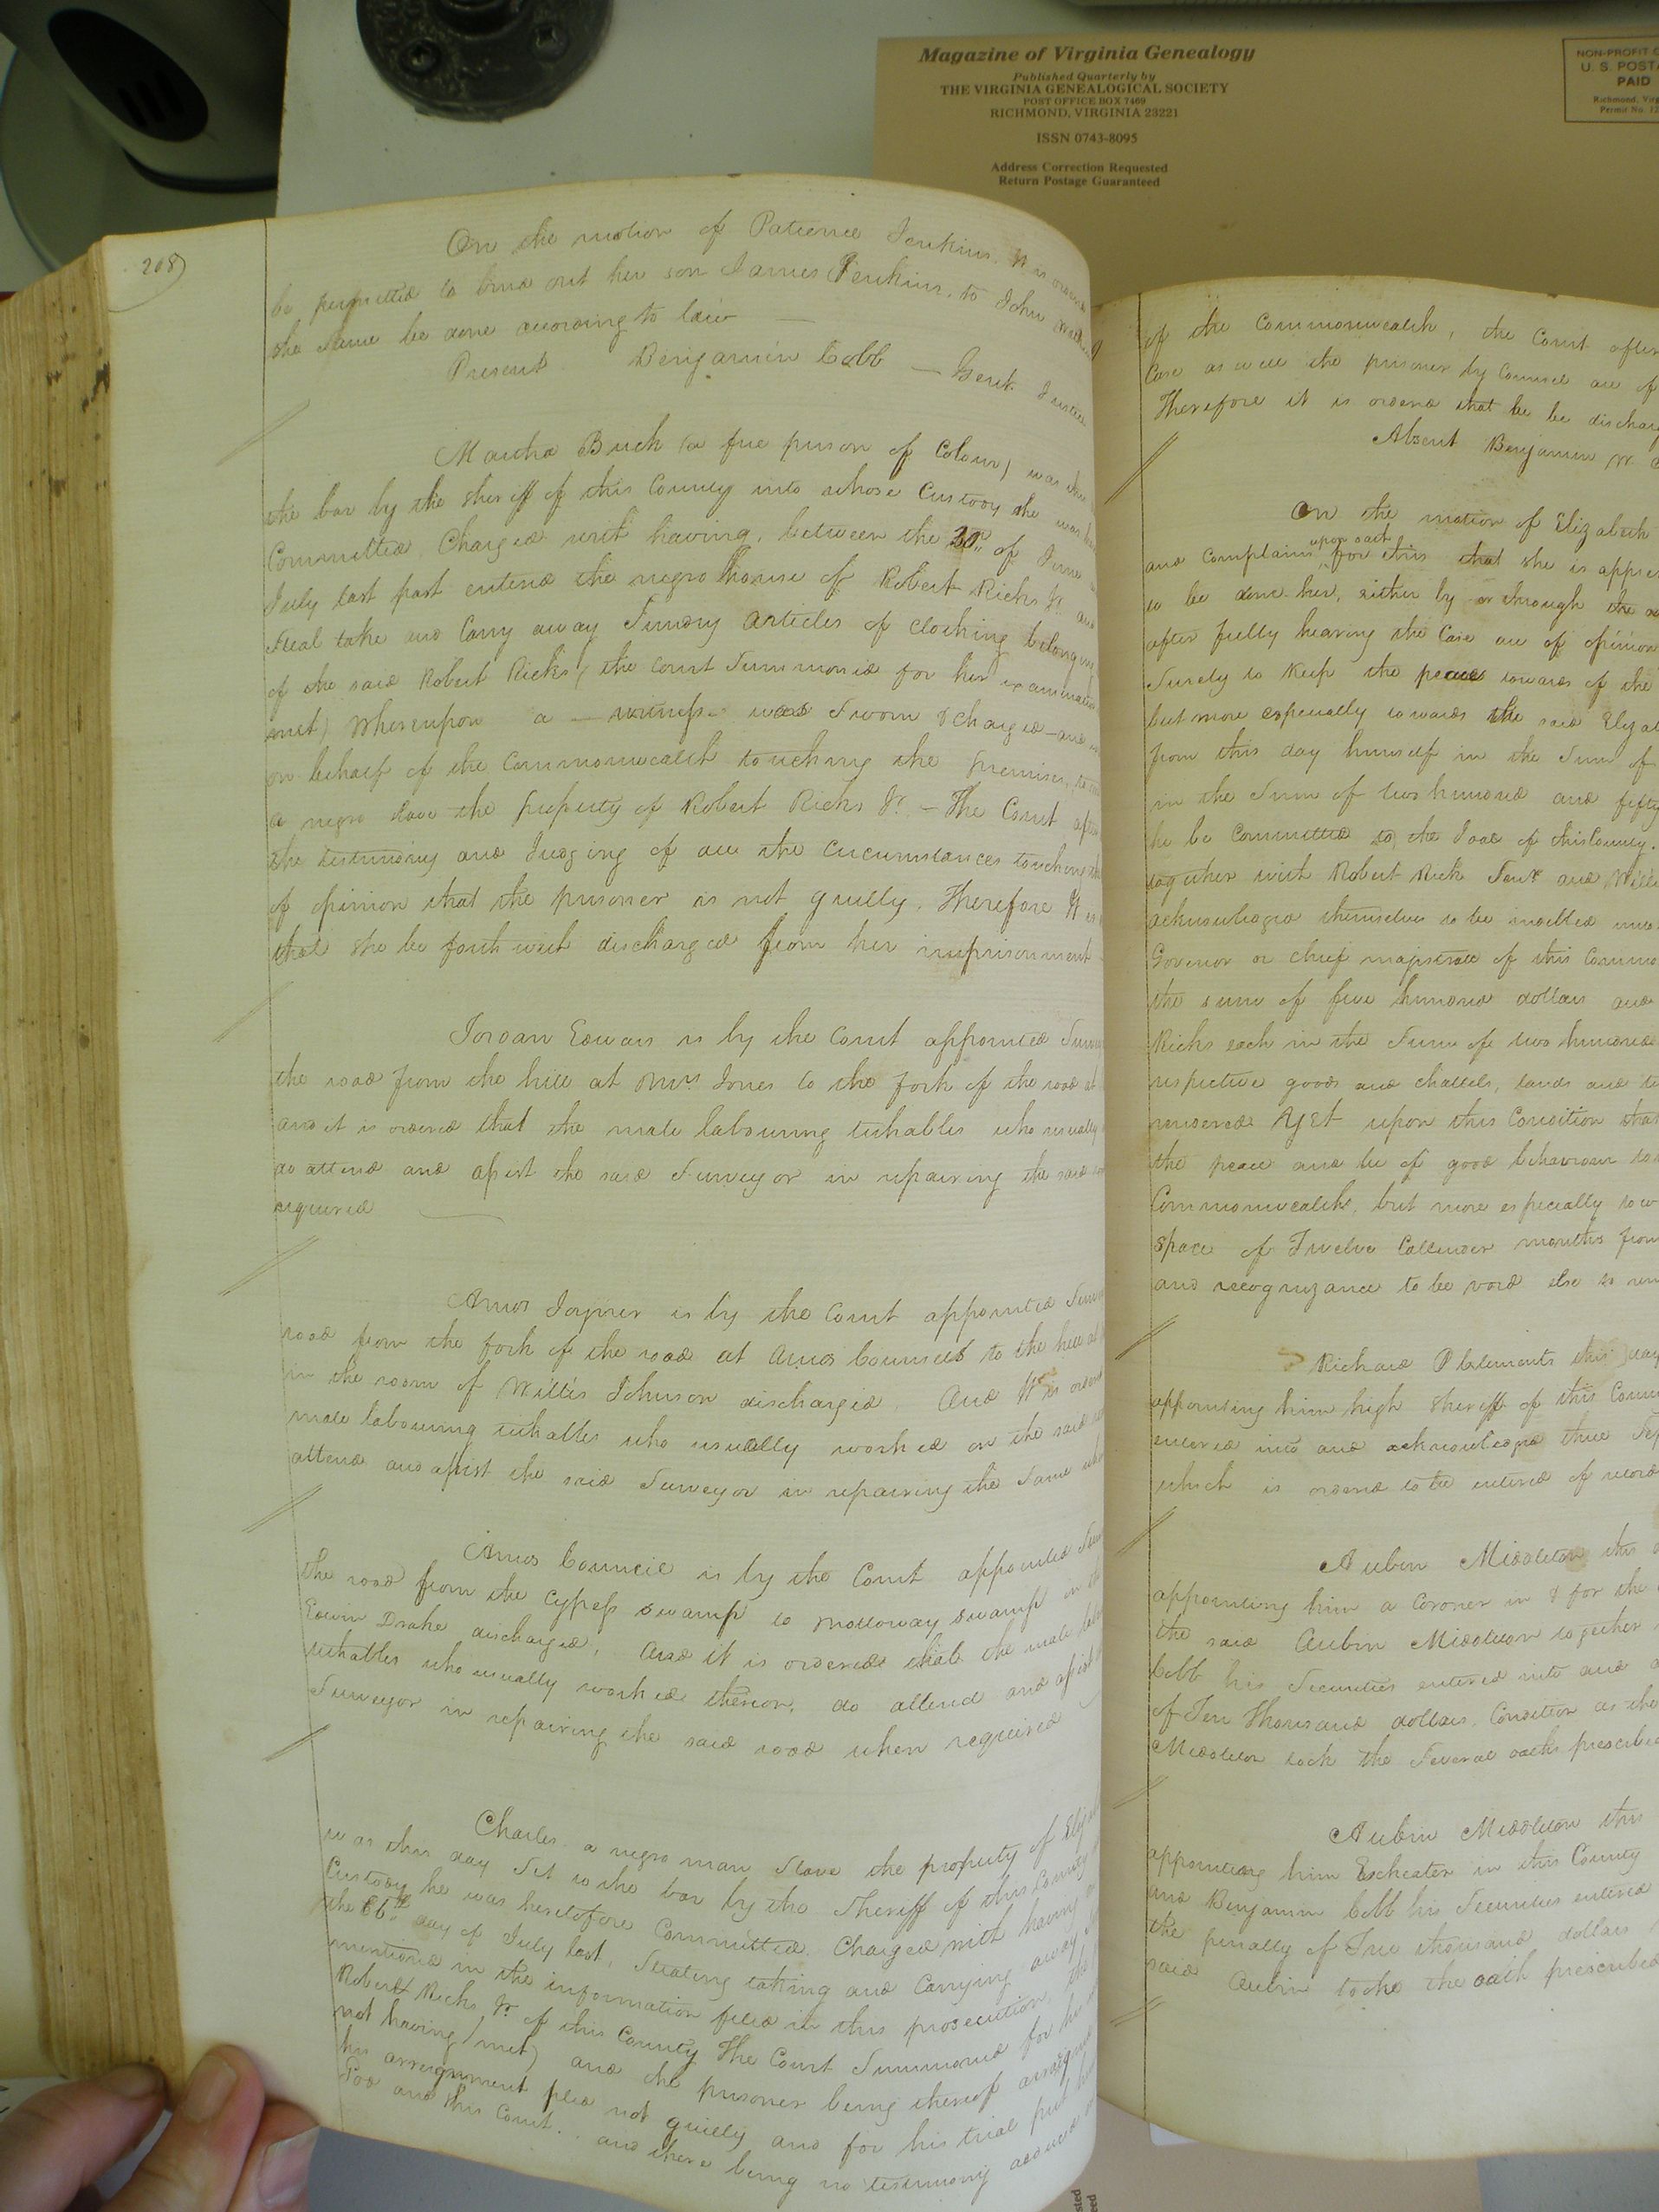 Magazine of Virginia Genealogy
Published Quarterly by
THE VIRGINIA GENEALOGICAL SOCIETY
POST OFFICE BOX 7469
RICHMOND, VIRGINIA 23221
ISSN 0743-8095
Address Correction Requested
Return Postage Guaranteed
NON-PROFIT
U. S. POST
PAID
Richmond, Vir
Permit No. 12
208)
On the motion of Patience Jenkins. It is
be permitted to bind out her son James Jenkins, to John
the same be done according to law
Present Benjamin Cobb — Gent. Justice
Martha Buck (a free person of Colour) was
the bar by the Sheriff of this County into whose Custody she was
Committed, Charged with having, between the of June
July last past entered the negro house of Robert Ricks Jr. and
steal take and Carry away Sundry articles of Clothing
of the said Robert Ricks (the Court Summoned for her examination
met) Whereupon a — witness — was Sworn & Charged — and
on behalf of the Commonwealth touching the premises,
a negro slave the property of Robert Ricks Jr. — The Court after
the testimony and Judging of all the circumstances touching
of opinion that the prisoner is not guilty. Therefore It is
that she be forthwith discharged from her imprisonment
Jordan Edwards is by the Court appointed
the road from the hill at Mrs Jones to the fork of the road at
and it is ordered that the male labouring tithables who usually
do attend and assist the said Surveyor in repairing the said
required
Amos Joyner is by the Court appointed
road from the fork of the road at Amos Councils to the hill at
in the room of Willis Johnson discharged. And It is
male labouring tithables who usually worked on the said
attend and assist the said Surveyor in repairing the same
Amos Council is by the Court appointed
the road from the Cypress swamp to swamp in the
Edwin Drake discharged, And it is ordered that the male
tithables who usually worked thereon, do attend and assist
Surveyor in repairing the said road when required
Charles a negro man Slave the property of
was this day Set to the bar by the Sheriff of this County
Custody he was heretofore Committed. Charged with having
the day of July last, Stealing taking and Carrying away
mentioned in the information filed in this prosecution, the
Robert Ricks Jr. of this County The Court Summoned for
not having (met) and the prisoner being thereof
his arraignment plead not guilty and for his trial put
God and this Court. and there being no testimony adduced
of the Commonwealth, the Court after
Case as well the prisoner by Counsel are of
Therefore it is ordered that he be
Absent Benjamin W
On the motion of Elizabeth
upon oath
and Complaint for this that she is
to be done her, either by or through the
after fully hearing the Case are of opinion
Surety to keep the peace towards of the
but more especially towards the said
from this day himself in the Sum of
in the Sum of two hundred and fifty
he be Committed to the Jail of this County.
together with Robert Ricks Senr and
acknowledged themselves to be indebted
Governor or chief magistrate of this
the sum of five hundred dollars and
Ricks each in the Sum of two hundred
respective goods and chattels, lands and
rendered. Yet upon this Condition that
the peace and be of good behaviour
Commonwealth, but more especially
space of Twelve Callender months from
and recognizance to be void else to
Richard P Clements this day
appointing him high Sheriff of this
entered into and acknowledged three
which is ordered to be entered of record
Aubin Middleton this
appointing him a Coroner in & for the
the said Aubin Middleton together
Cobb his Securities entered into and
of Ten thousand dollars, Condition as the
Middleton took the Several oaths prescribed
Aubin Middleton this
appointing him Escheater in this County
and Benjamin Cobb his Securities entered
the penalty of thousand dollars
said Aubin took the oath prescribed